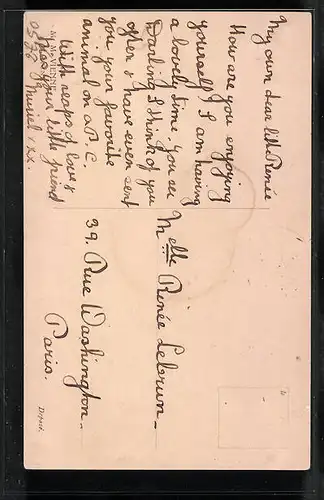 My own dear little Renée
How are you enjoying
yourself? I am having
a lovely time. You see
Darling I think of you
often & have even sent
you your favorite
animal on a P.C.
With heaps of love &
kisses from your little friend
Muriel xx.
Melle Renée Lebrun -
39. Rue Washington -
Paris.
Déposé.